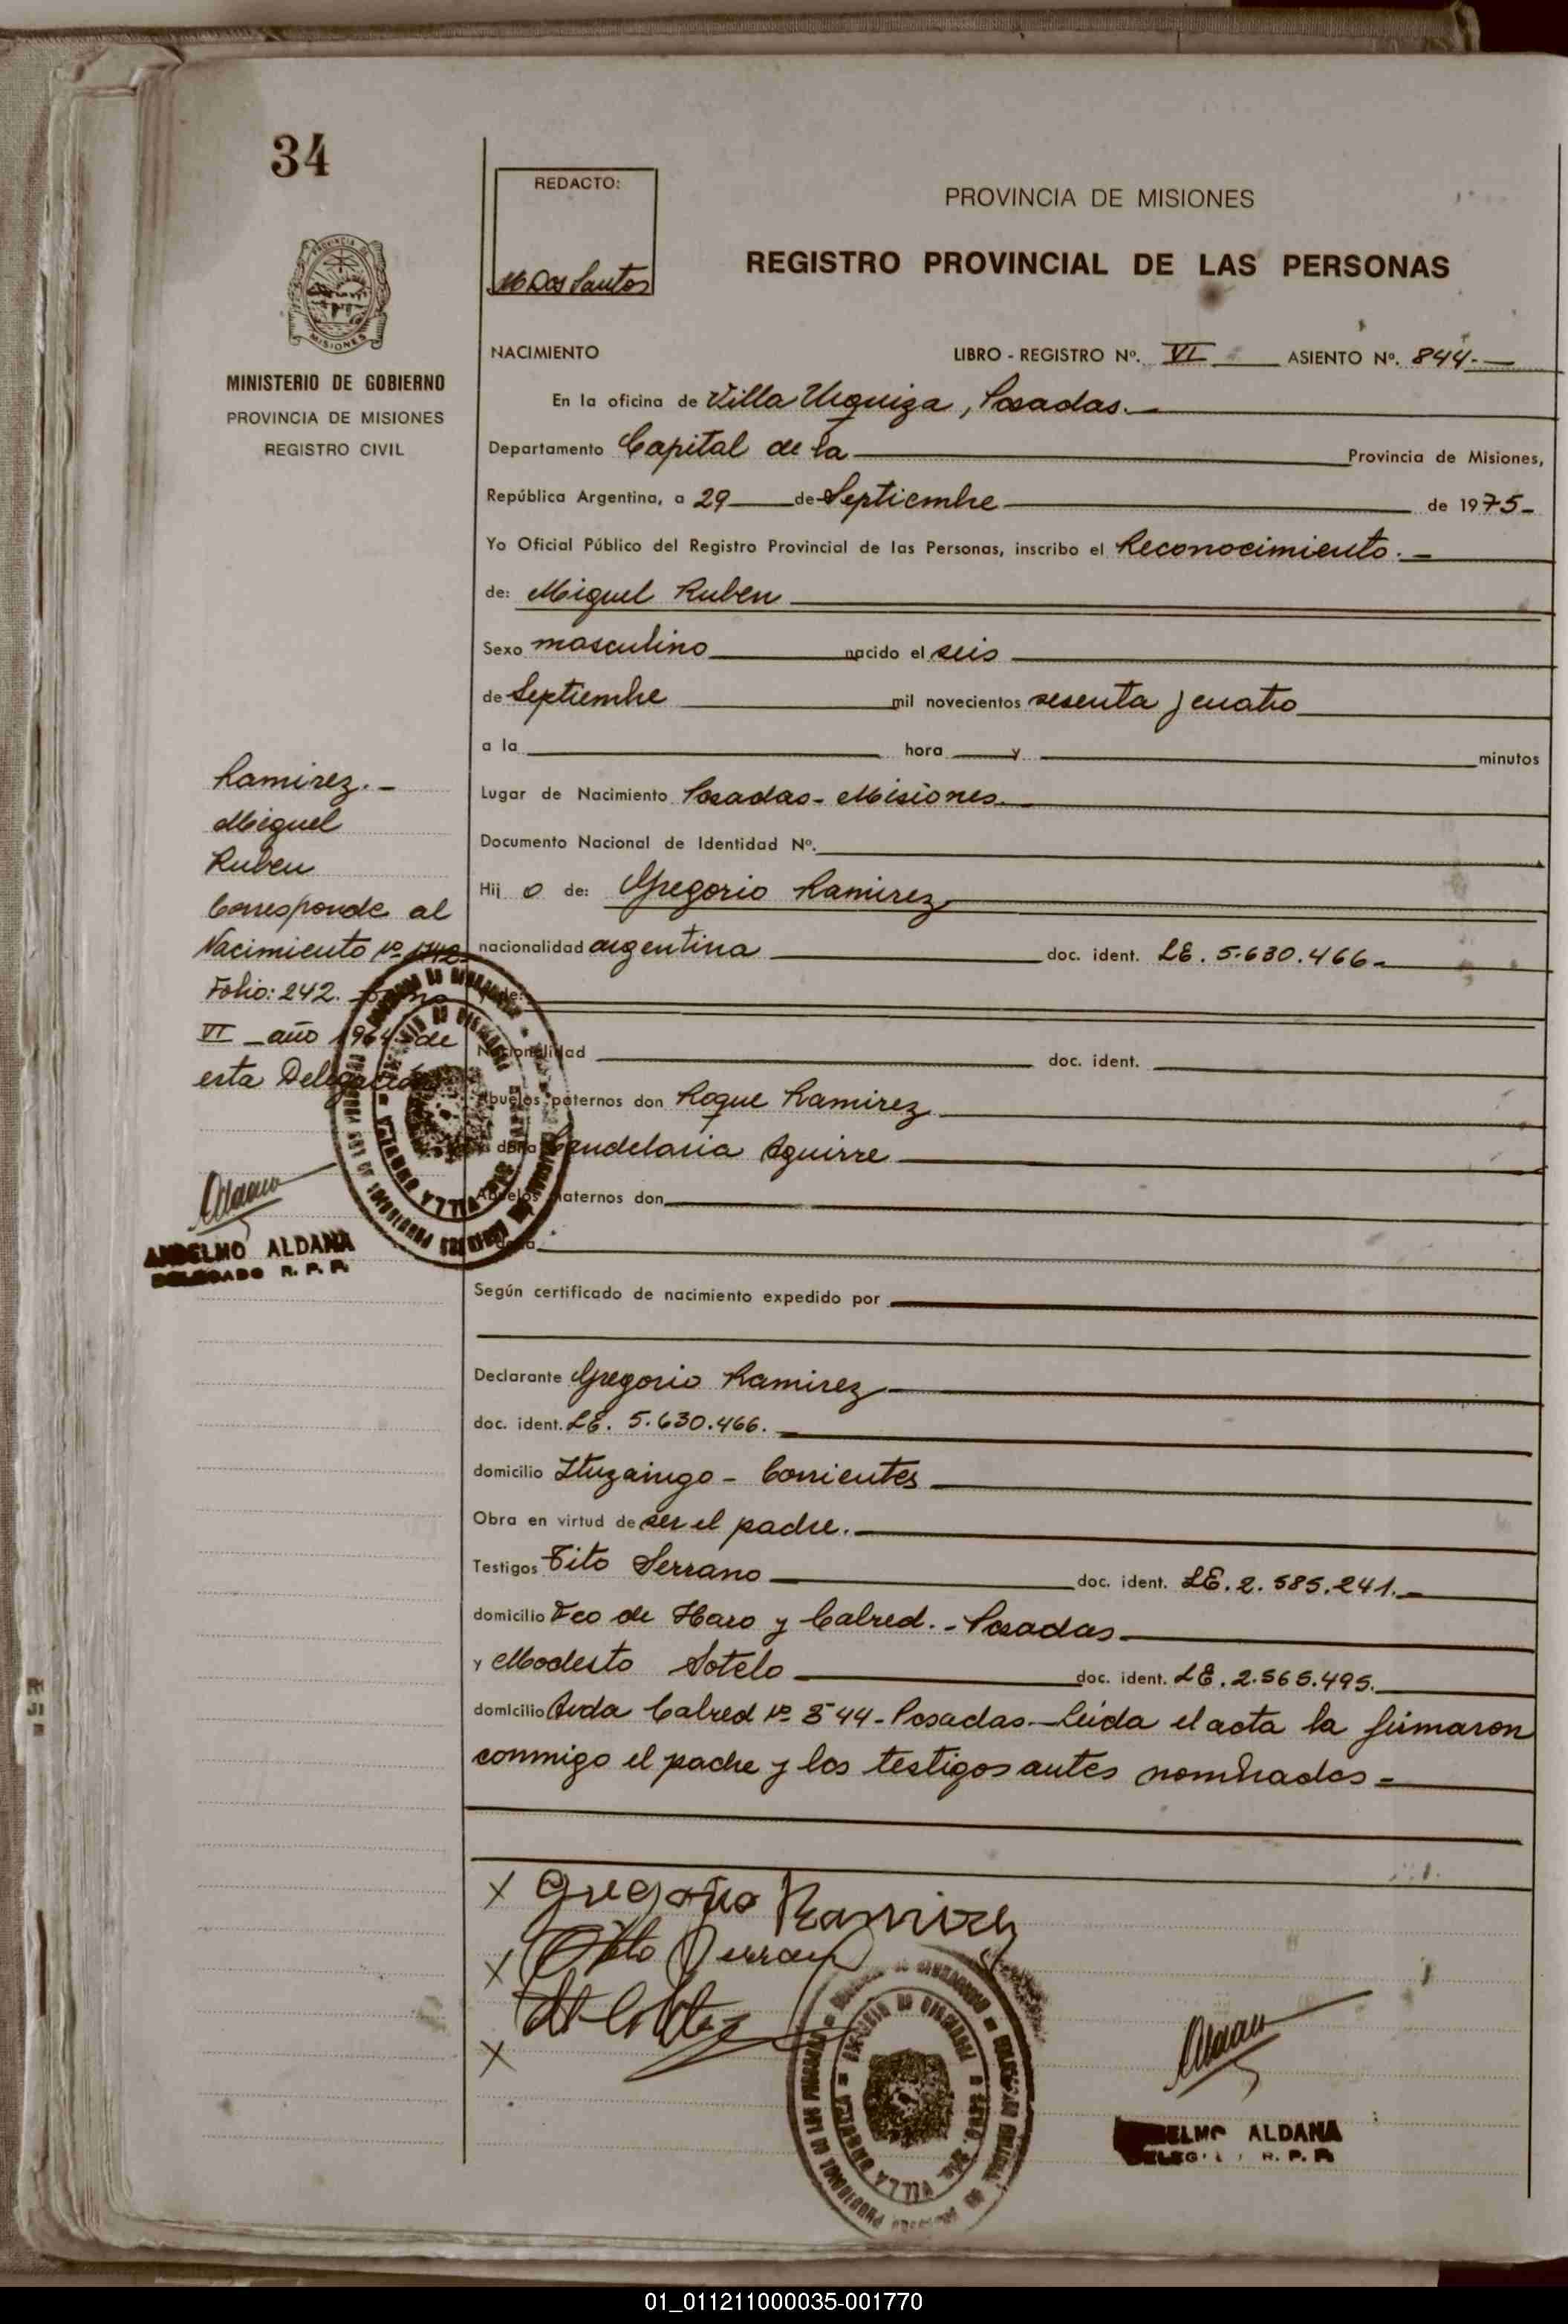 34
REDACTO:
M Dos Santos
PROVINCIA DE MISIONES
REGISTRO PROVINCIAL DE LAS PERSONAS
PROVINCIA DE
MISIONES
MINISTERIO DE GOBIERNO
PROVINCIA DE MISIONES
REGISTRO CIVIL
NACIMIENTO LIBRO - REGISTRO Nº. VI ASIENTO Nº. 844.-
En la oficina de Villa Urquiza, Posadas.-
Departamento Capital de la Provincia de Misiones,
República Argentina, a 29 de Septiembre de 1975-
Yo Oficial Público del Registro Provincial de las Personas, inscribo el Reconocimiento.-
de: Miguel Ruben
Sexo masculino nacido el seis
de Septiembre mil novecientos sesenta y cuatro
a la hora y minutos
Lugar de Nacimiento Posadas - Misiones.
Documento Nacional de Identidad Nº.
Hij o de: Gregorio Ramirez
nacionalidad argentina doc. ident. LE. 5.630.466-
y de:
Nacionalidad doc. ident.
Abuelos paternos don Roque Ramirez
y doña Candelaria Aguirre
Abuelos maternos don
y doña
Según certificado de nacimiento expedido por
Declarante Gregorio Ramirez
doc. ident. LE. 5.630.466.
domicilio Ituzaingo - Corrientes
Obra en virtud de ser el padre.
Testigos Tito Serrano doc. ident. LE. 2.585.241.-
domicilio Fco de Haro y Cabred.- Posadas
y Modesto Sotelo doc. ident. LE. 2.565.495.
domicilio Avda Cabred Nº 844 - Posadas.- Leida el acta la firmaron
conmigo el padre y los testigos antes nombrados-
Ramirez.-
Miguel
Ruben
Corresponde al
Nacimiento Nº
Folio: 242. Tomo
VI - año 1964 de
esta Delegación
Aldana
ANSELMO ALDANA
DELEGADO R. P. P.
VILLA URQUIZA
X Gregorio Ramirez
X Tito Serrano
X
VILLA URQUIZA
Aldana
ELMO ALDANA
R. P. P.
01_011211000035-001770